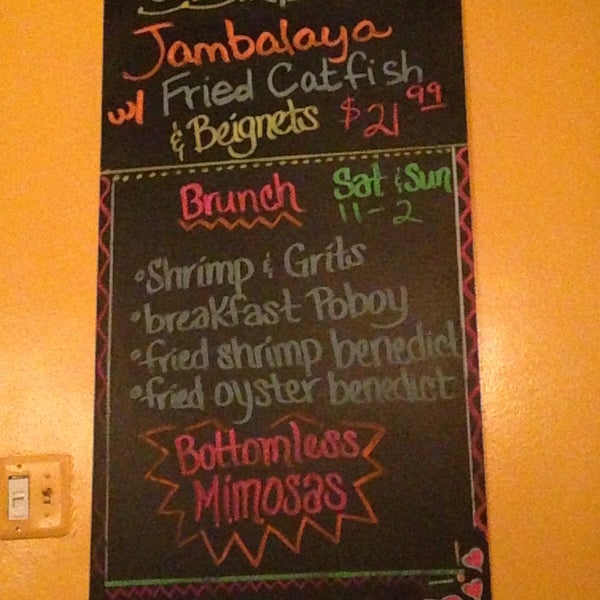 Jambalaya
w/ Fried Catfish
& Beignets $21.99
Brunch Sat & Sun
11-2
•Shrimp & Grits
•breakfast Poboy
•fried shrimp benedict
•fried oyster benedict
Bottomless
Mimosas